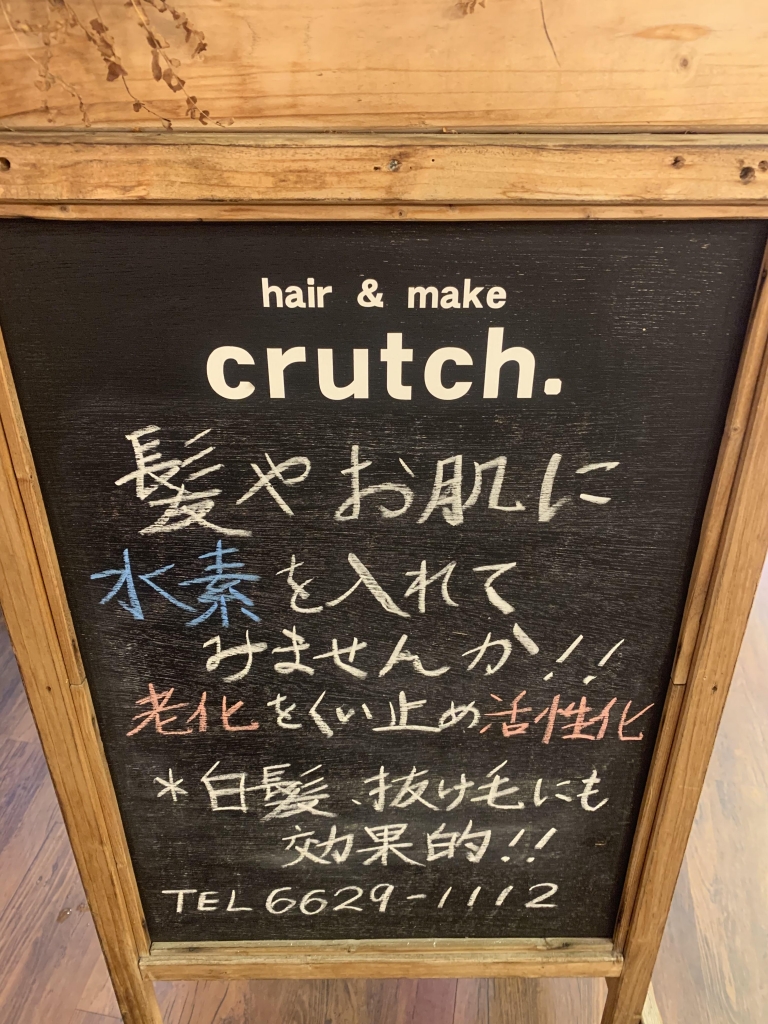 hair & make
crutch.
髪やお肌に
水素を入れて
みませんか!!
老化をくい止め活性化
*白髪、抜け毛にも
効果的!!
TEL 6629-1112